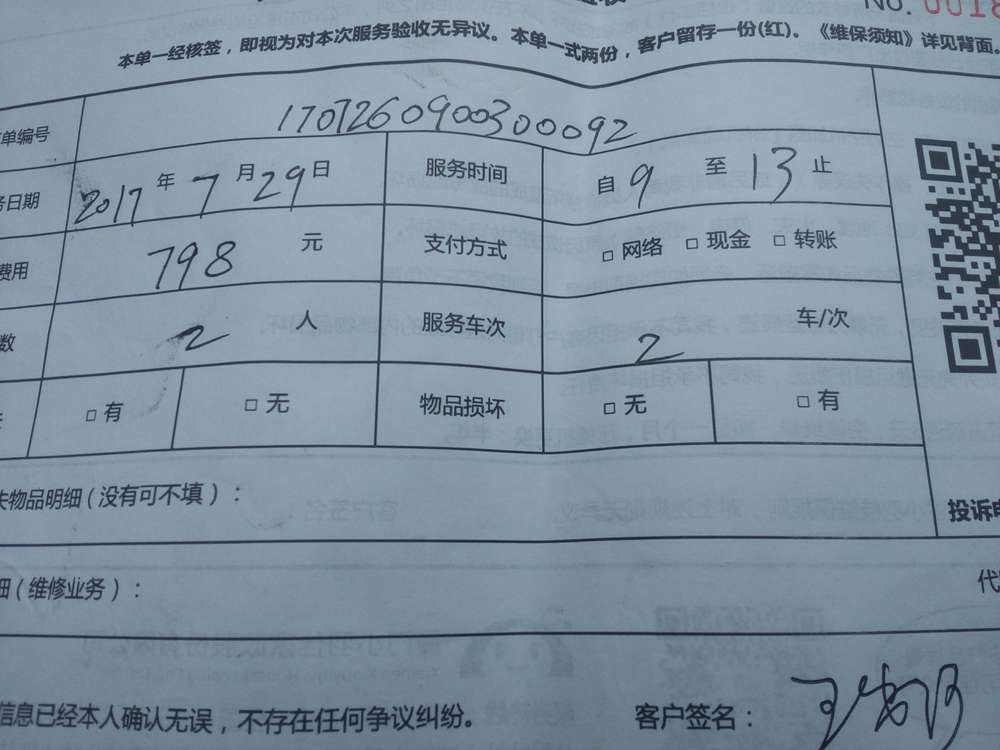 No. 0018
本单一经核签，即视为对本次服务验收无异议。本单一式两份，客户留存一份(红)。《维保须知》详见背面。
单编号 1707260900300092
务日期 2017 年 7 月 29 日 服务时间 自 9 至 13 止
费用 798 元 支付方式 □ 网络 □ 现金 □ 转账
数 2 人 服务车次 2 车/次
□ 有 □ 无 物品损坏 □ 无 □ 有
失物品明细（没有可不填）：
投诉电
细（维修业务）：
代
信息已经本人确认无误，不存在任何争议纠纷。 客户签名：